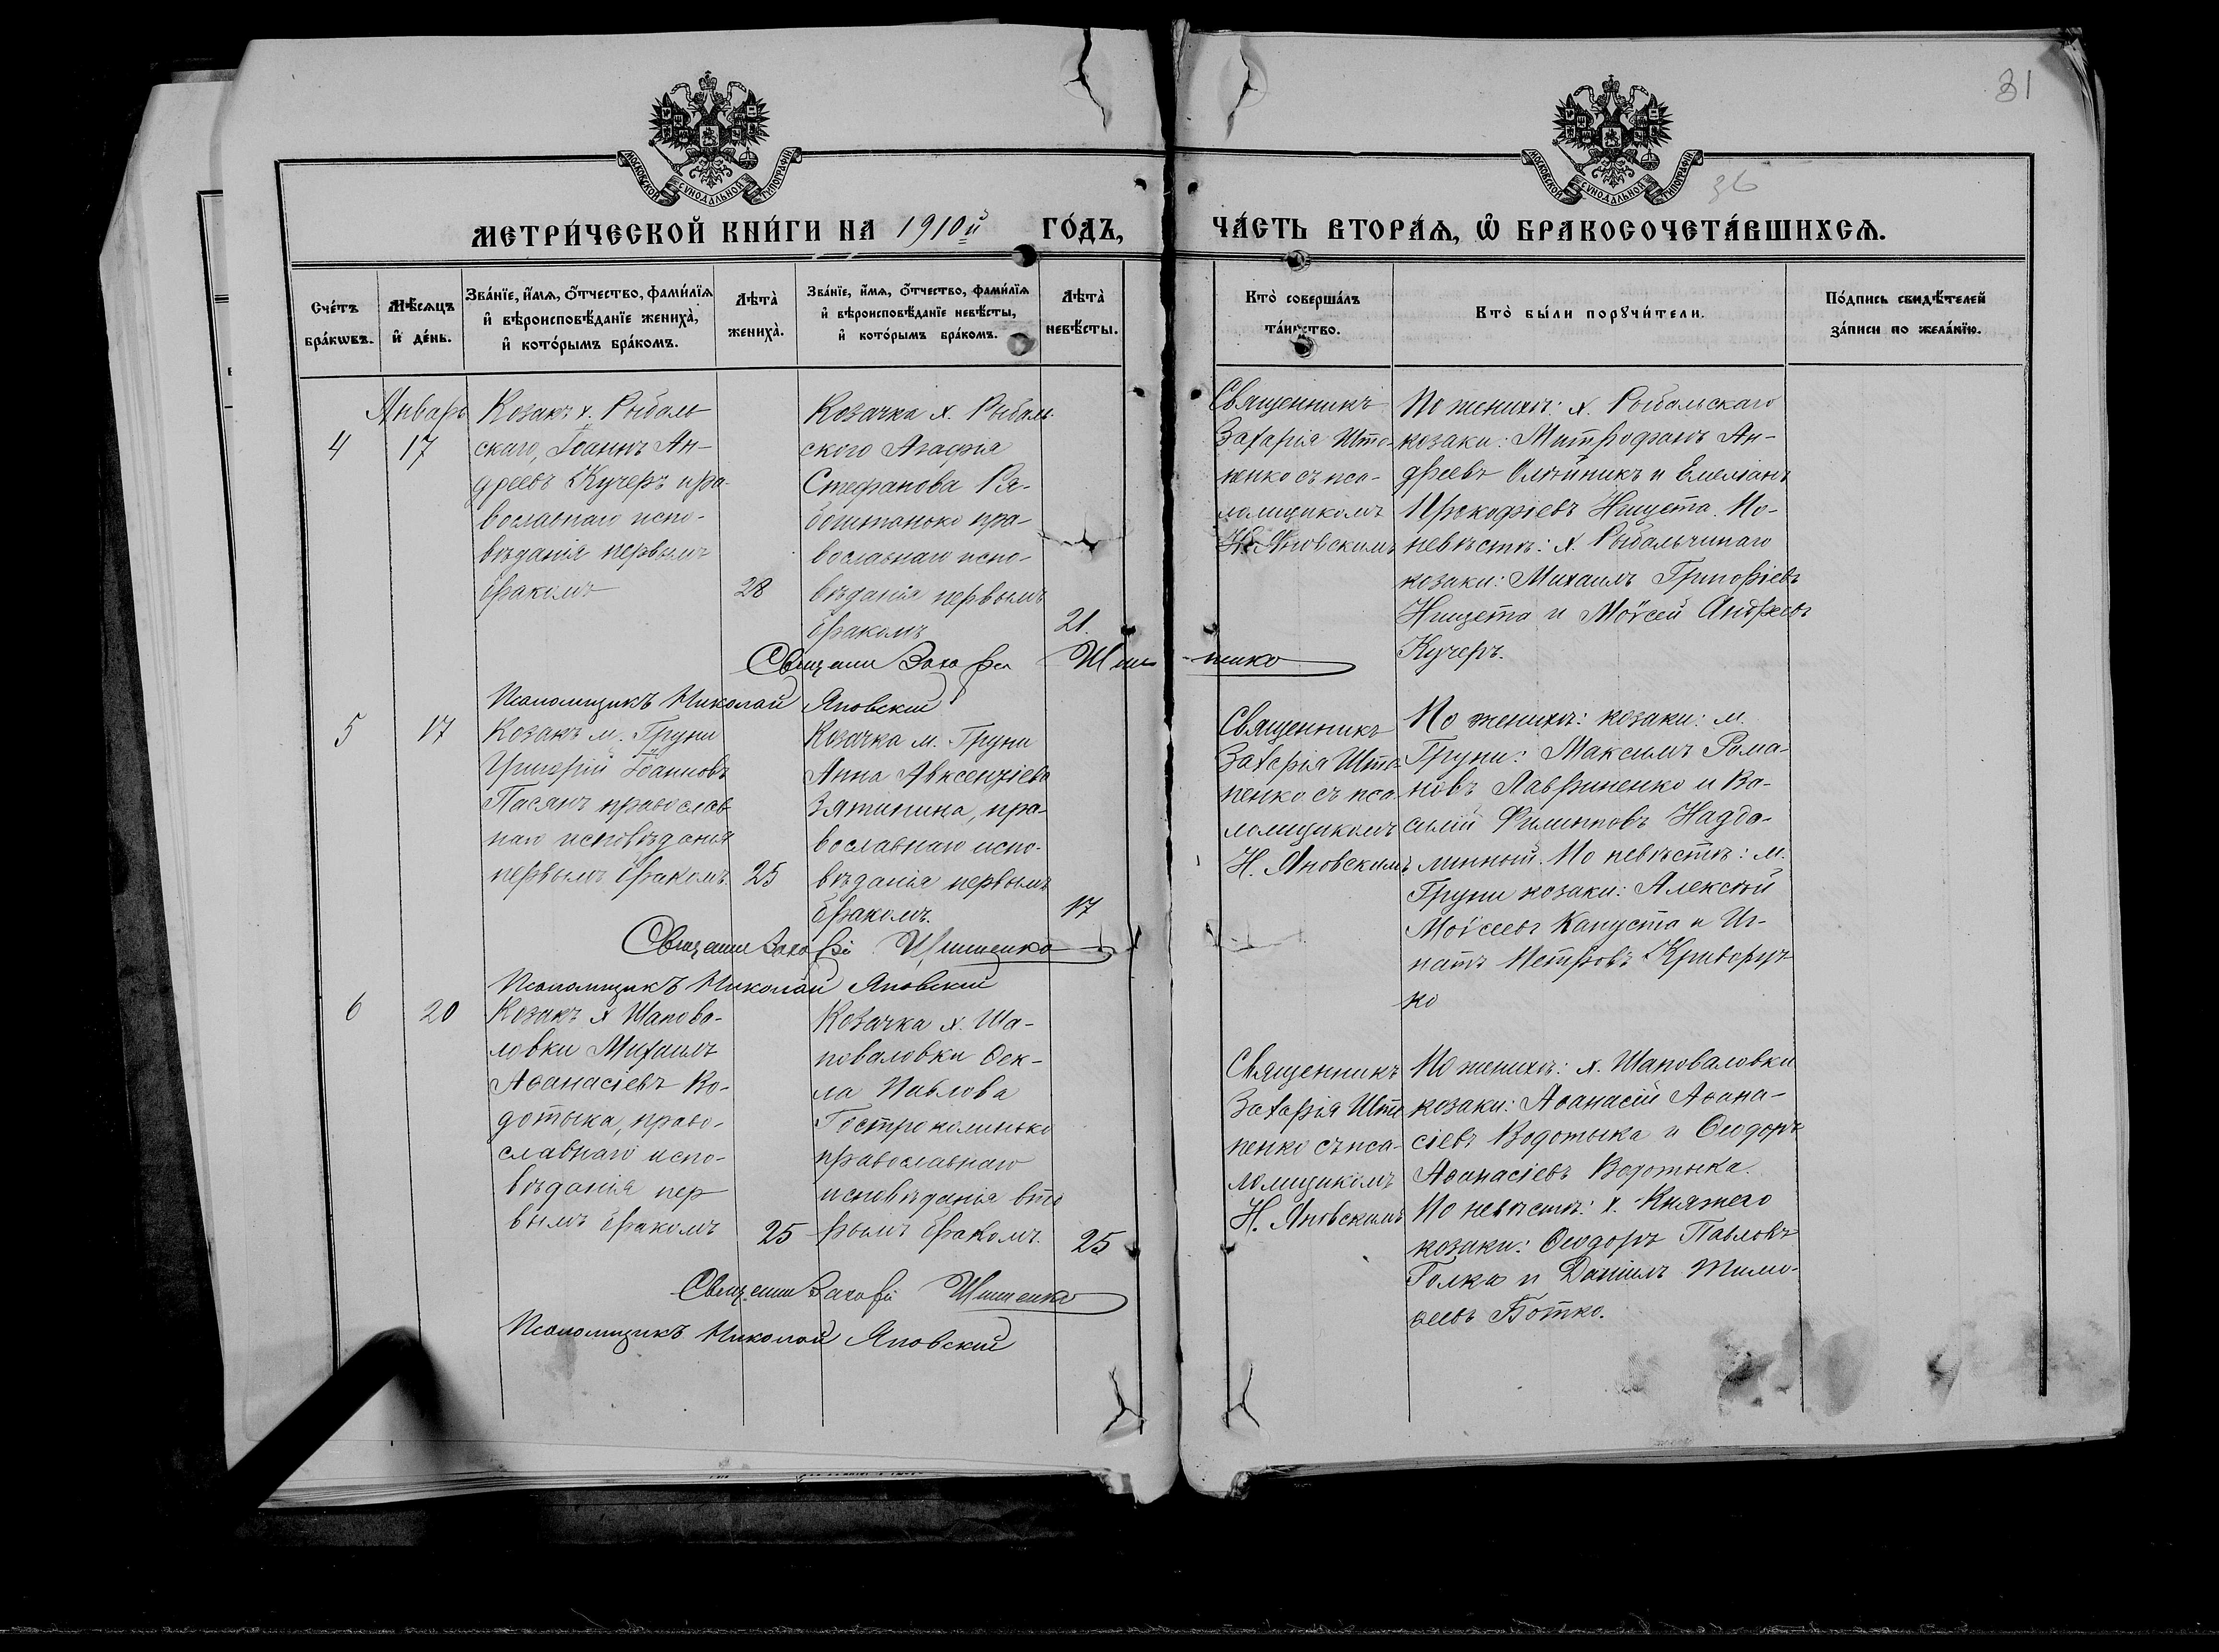 31
36
МОСКОВСКОЙ СѴНОДАЛЬНОЙ ТИПОГРАФІИ
МОСКОВСКОЙ СѴНОДАЛЬНОЙ ТИПОГРАФІИ
МЕТРИ́ЧЕСКОЙ КНИ́ГИ НА 1910й ГО́ДЪ,
ЧА́СТЬ ВТОРА́Ѧ, Ѽ БРАКОСОЧЕТА́ВШИХСѦ.
Сче́тъ бра́кѡвъ.
Мѣ́сѧцъ и҆ де́нь.
Зва́нїе, и҆́мѧ, ѻ҆́тчество, фами́лїѧ
и҆ вѣроисповѣ́данїе жениха̀,
и҆ кото́рымъ бра́комъ.
Лѣта̀ жениха̀.
Зва́нїе, и҆́мѧ, ѻ҆́тчество, фами́лїѧ
и҆ вѣроисповѣ́данїе невѣ́сты,
и҆ кото́рымъ бра́комъ.
Лѣта̀ невѣ́сты.
Кто̀ соверша́лъ та́инство.
Кто̀ бы́ли порꙋчи́тели.
По́дпись свидѣ́телей
за́писи по жела́нїю.
4
Январь
17
Козакъ х. Рыбаль
скаго, Іоаннъ Ан-
дреевъ Кучеръ пра-
вославнаго испо-
вѣданія первымъ
бракомъ
28
Козачка х. Рыбаль-
ского Агафія
Стефанова
пра-
вославнаго испо-
вѣданія первымъ
бракомъ
21.
Священникъ
Захарія
ненко съ пса-
ломщикомъ
Н. Яновскимъ
По женихѣ: х. Рыбальскаго
козаки: Митрофанъ Ан-
дреевъ Олѣйникъ и Емеліанъ
Прокофіевъ Нищета. По
невѣстѣ: х. Рыбальчинаго
козаки: Михаилъ Григоріевъ
Нищета и Моѵсей Андреевъ
Кучеръ.
Псаломщикъ Николай Яновскій
5
17
Козакъ м. Груни
Григорій Іоанновъ
православ
наго исповѣданія
первымъ бракомъ.
25
Козачка м. Груни
Анна Авксентіева
Зятинина, пра-
вославнаго испо-
вѣданія первымъ
бракомъ.
17
Священникъ
Захарія
ненко съ пса-
ломщикомъ
Н. Яновскимъ
По женихѣ: козаки: м.
Груни: Максимъ Рома-
новъ Лавриненко и Ва-
силій Филипповъ Надто-
По невѣстѣ: м.
Груни козаки: Алексѣй
Моѵсеевъ Капуста и Иг-
натъ Петровъ Криворуч-
ко
Псаломщикъ Николай Яновскій
6
20
Козакъ х. Шапова-
ловки Михаилъ
Аѳанасіевъ Во-
дотыка, право-
славнаго испо-
вѣданія пер
вымъ бракомъ
25
Козачка х. Ша-
поваловки Ѳек-
ла Павлова
православнаго
исповѣданія вто
рымъ бракомъ.
25
Священникъ
Захарія
ненко съ пса-
ломщикомъ
Н. Яновскимъ
По женихѣ: х. Шаповаловки
козаки: Аѳанасій Аѳана-
сіевъ Водотыка и Ѳеодоръ
Аѳанасіевъ Водотыка.
По невѣстѣ: х. Княжего
козаки: Ѳеодоръ Павловъ
Голка и Даніилъ Тимо-
ѳеевъ Ботко.
Псаломщикъ Николай Яновскій